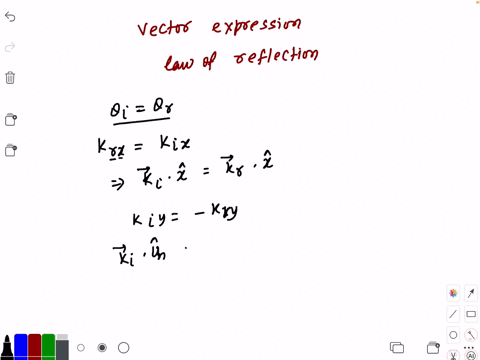 vector expression
law of reflection
θi = θr
Krx = Kix
⇒ K⃗i · x̂ = K⃗r · x̂
Kiy = - Kry
K⃗i ·